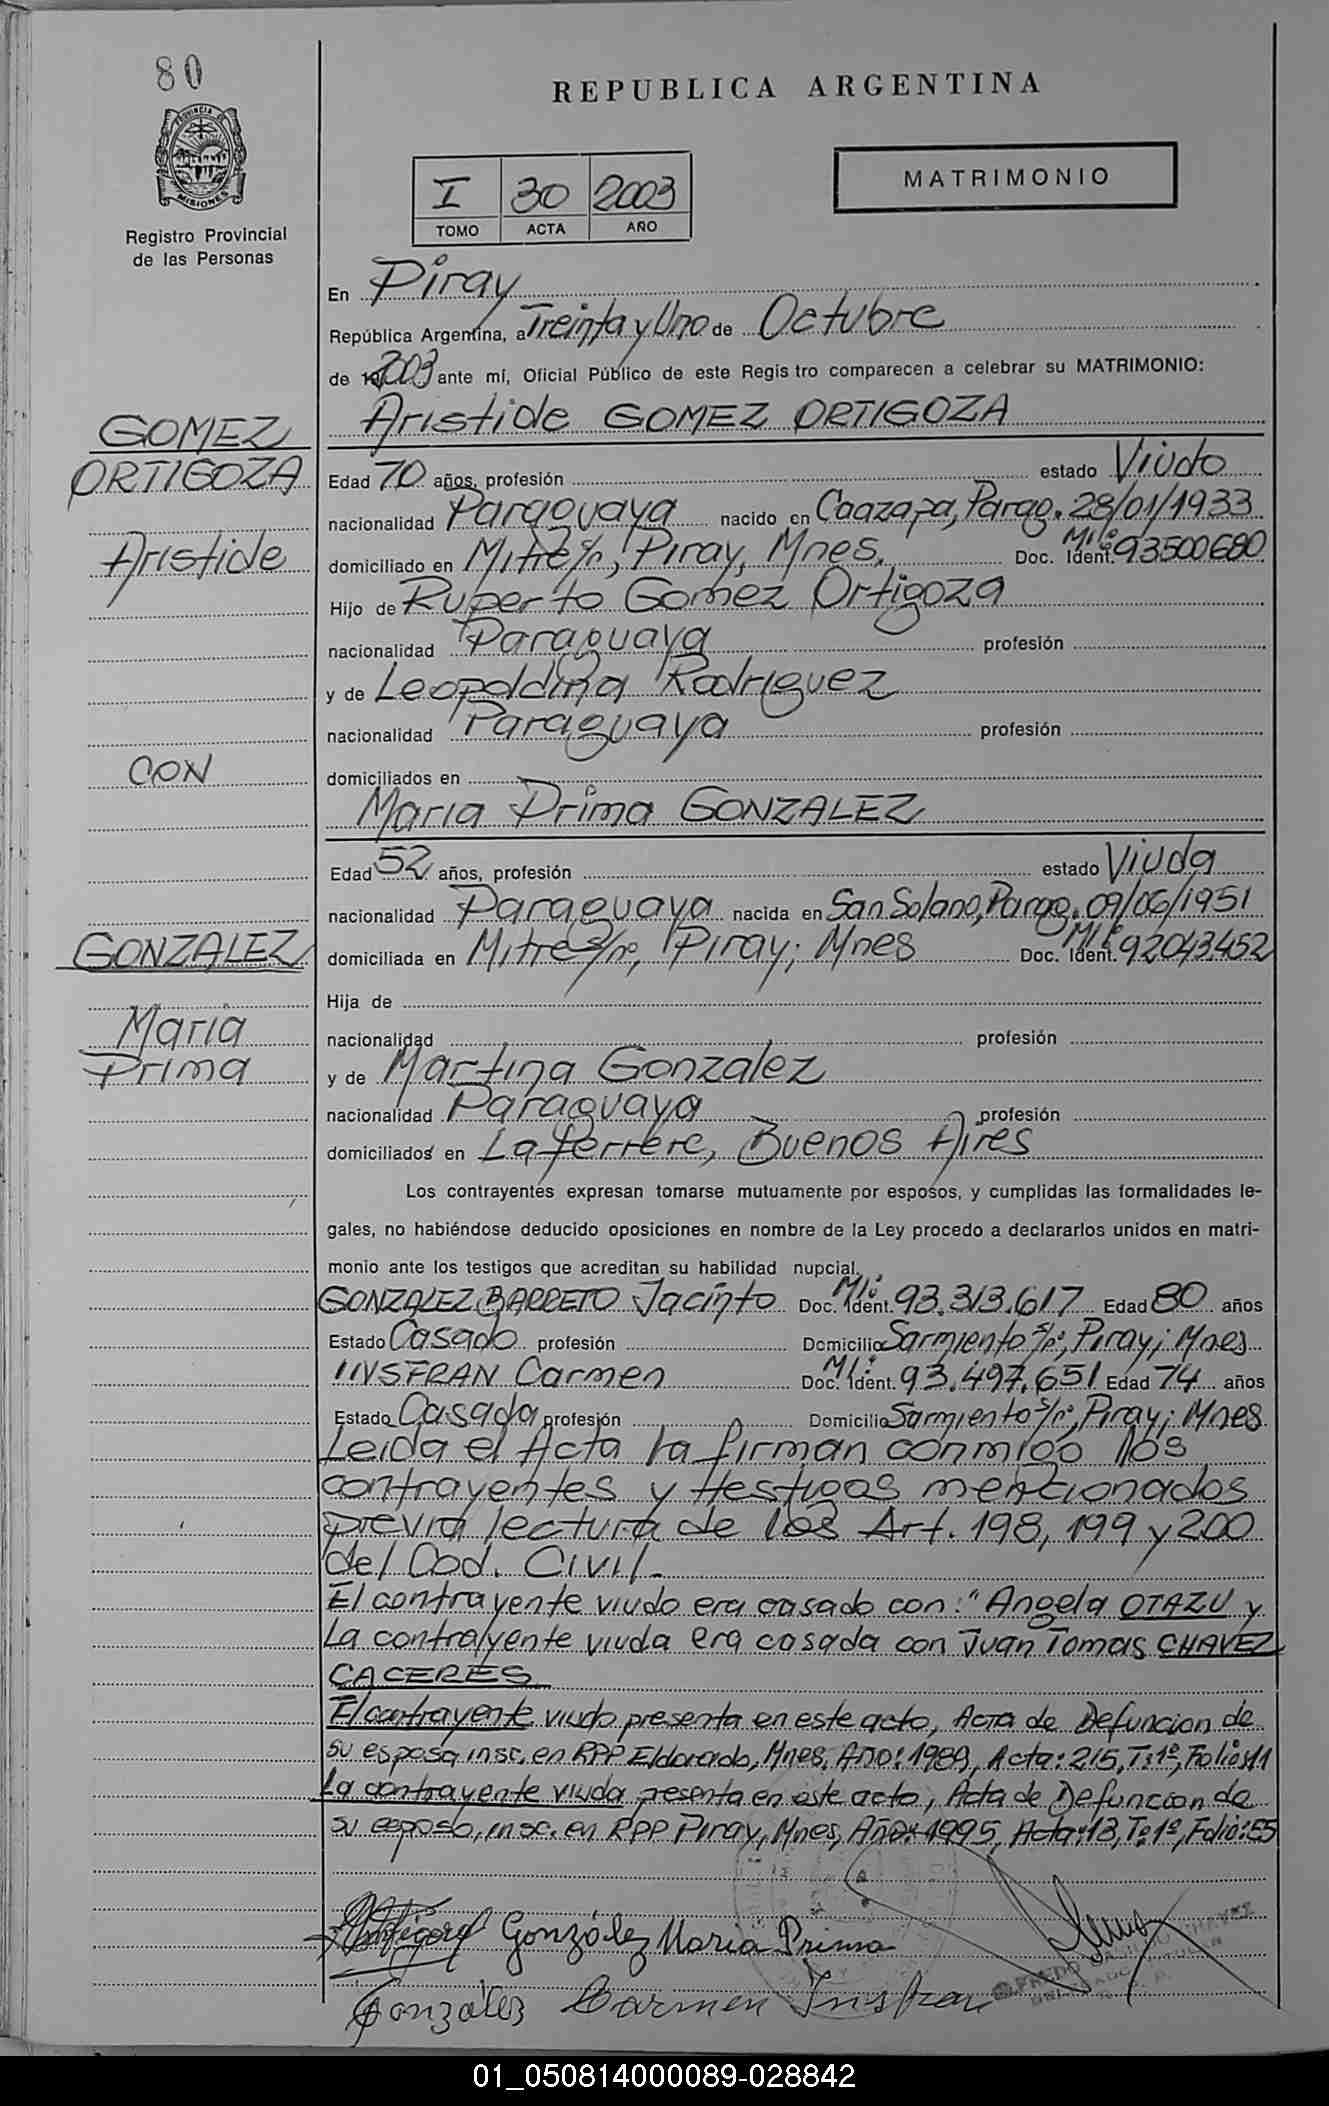 80
REPUBLICA ARGENTINA
PROVINCIA DE
MISIONES
Registro Provincial
de las Personas
I 30 2003
TOMO ACTA AÑO
MATRIMONIO
En Piray
República Argentina, a Treinta y Uno de Octubre
de 2003 ante mí, Oficial Público de este Regis tro comparecen a celebrar su MATRIMONIO:
Aristide GOMEZ ORTIGOZA
GOMEZ
ORTIGOZA
Aristide
Edad 70 años, profesión estado Viudo
nacionalidad Paraguaya nacido en Caazapa, Parag. 28/01/1933
domiciliado en Mitre s/n, Piray, Mnes, Doc. Ident. M.I.: 93500680
Hijo de Ruperto Gomez Ortigoza
nacionalidad Paraguaya profesión
y de Leopoldina Rodriguez
nacionalidad Paraguaya profesión
CON
domiciliados en
Maria Prima GONZALEZ
Edad 52 años, profesión estado Viuda
nacionalidad Paraguaya nacida en San Solano, Parag. 09/06/1951
GONZALEZ
Maria
Prima
domiciliada en Mitre s/nº, Piray; Mnes Doc. Ident. M.I.: 92043.452
Hija de
nacionalidad profesión
y de Martina Gonzalez
nacionalidad Paraguaya profesión
domiciliados en Laferrere, Buenos Aires
Los contrayentes expresan tomarse mutuamente por esposos, y cumplidas las formalidades le-
gales, no habiéndose deducido oposiciones en nombre de la Ley procedo a declararlos unidos en matri-
monio ante los testigos que acreditan su habilidad nupcial.
GONZALEZ BARRETO Jacinto Doc. Ident. M.I.: 93.313.617 Edad 80 años
Estado Casado profesión Domicilio Sarmiento s/nº, Piray; Mnes
INSFRAN Carmen Doc. Ident. M.I.: 93.497.651 Edad 74 años
Estado Casada profesión Domicilio Sarmiento s/nº, Piray; Mnes.
Leida el Acta la firman conmigo los
contrayentes y testigos mencionados
previa lectura de los Art. 198, 199 y 200
del Cod. Civil.-
El contrayente viudo era casado con: "Angela OTAZU y
La contrayente viuda era casada con Juan Tomas CHAVEZ
CACERES
El contrayente viudo presenta en este acto, Acta de Defuncion de
su esposa insc. en RPP Eldorado, Mnes, Año: 1989, Acta: 215, T: 1º, Folio: 11
La contrayente viuda presenta en este acto, Acta de Defuncion de
su esposo, insc. en RPP Piray, Mnes, Año: 1995, Acta: 13, T: 1º, Folio: 55
González Maria Prima
González Carmen Insfran
01_050814000089-028842